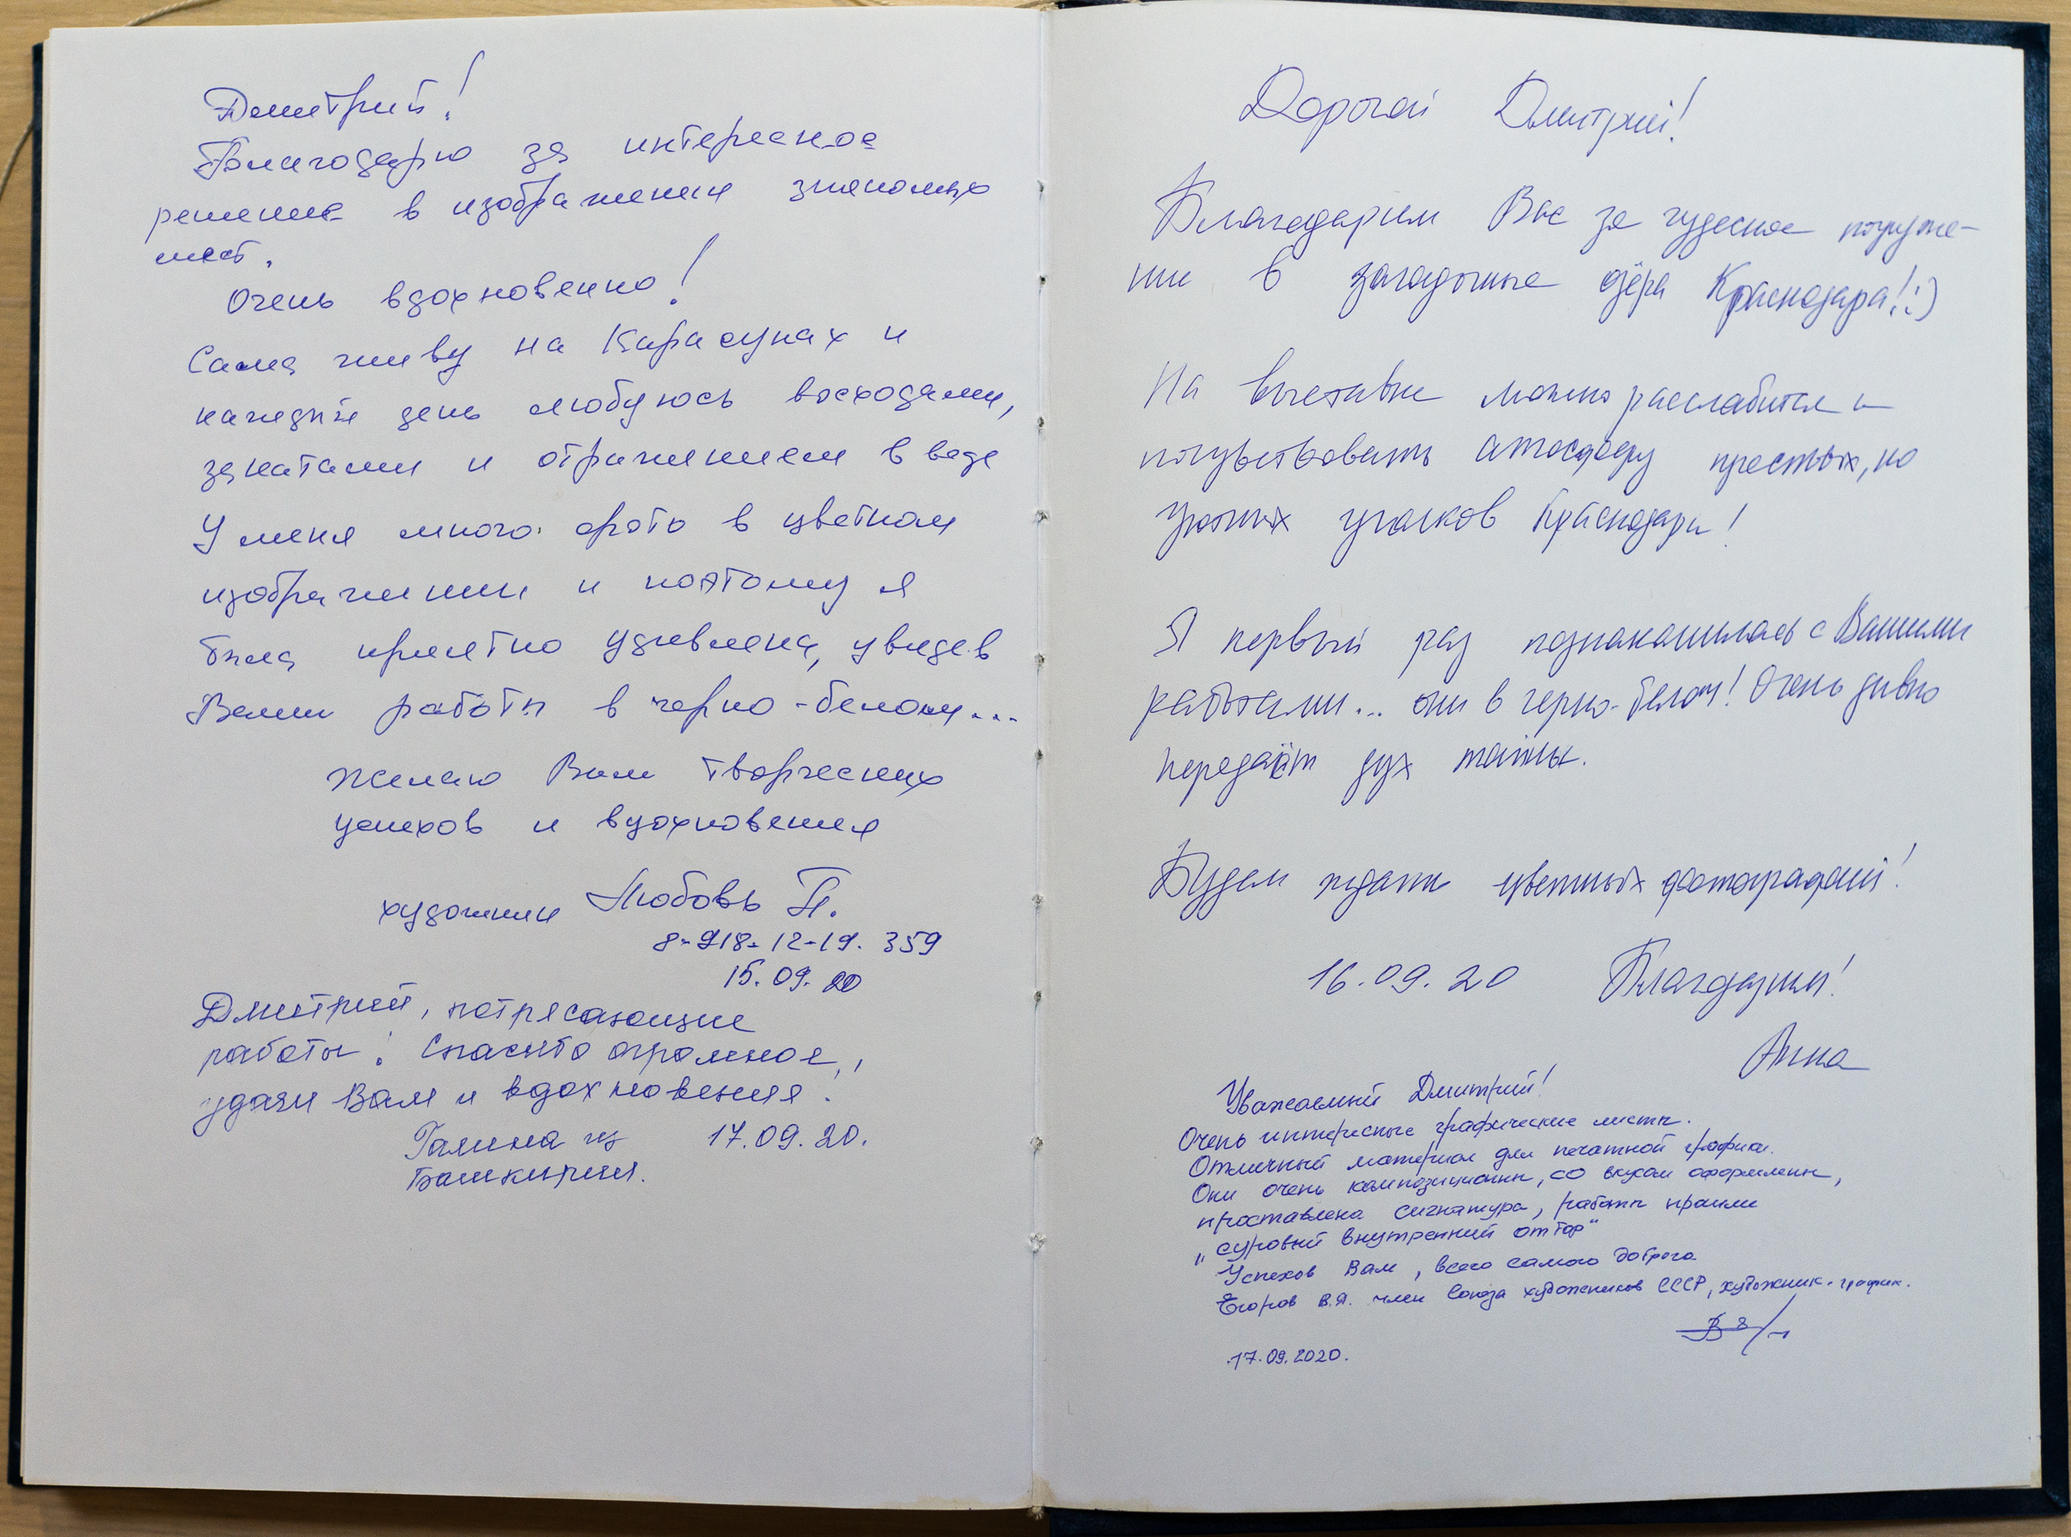 Дмитрий!
Благодарю за интересное
решение в изображении знакомых
мест.
Очень вдохновенно!
Сама живу на Карасунах и
каждый день любуюсь восходами,
закатами и отражением в воде
У меня много фото в цветном
изображении и поэтому я
была приятно удивлена, увидев
Ваши работы в черно-белом...
Желаю Вам творческих
успехов и вдохновения
художник Любовь П.
8-918-12-19-359
15.09.20
Дмитрий, потрясающие
работы! Спасибо огромное,
удачи Вам и вдохновения!
Галина из 17.09.20.
Башкирии.
Дорогой Дмитрий!
Благодарим Вас за чудесное погруже-
ние в загадочные озёра Краснодара!:)
На выставке можно расслабится и
почувствовать атмосферу простых, но
уютных уголков Краснодара!
Я первый раз познакомилась с Вашими
работами... они в черно-белом! Очень дивно
передаёт дух тайны.
Будем ждать цветных фотографий!
16.09.20 Благодарим!
Анна
Уважаемый Дмитрий!
Очень интересные графические листы.
Отличный материал для печатной графики.
Они очень композиционны, со вкусом оформлены,
проставлена сигнатура, работы прошли
"суровый внутренний отбор"
Успехов Вам, всего самого доброго
Егоров В.Я. член Союза художников СССР, художник-график.
17.09.2020.